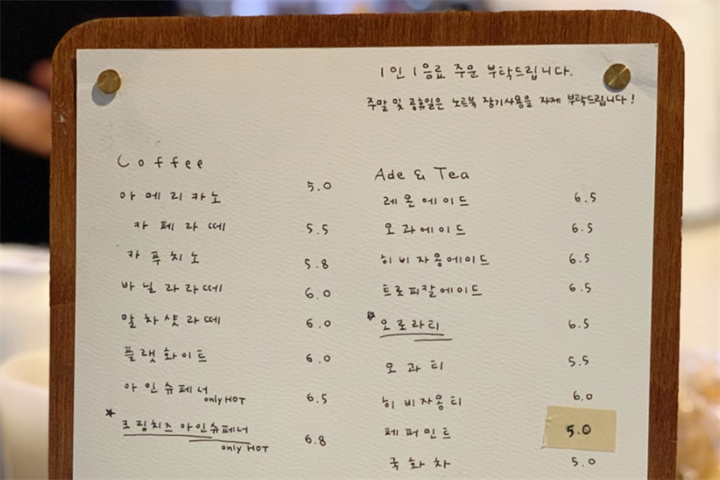 1인 1음료 주문 부탁드립니다.
주말 및 공휴일은 노트북 장기사용을 자제 부탁드립니다!
Coffee
아메리카노 5.0
카페라떼 5.5
카푸치노 5.8
바닐라라떼 6.0
말차샷라떼 6.0
플랫화이트 6.0
아인슈페너 6.5
only HOT
크림치즈 아인슈페너 6.8
only HOT
Ade & Tea
레몬에이드 6.5
오과에이드 6.5
히비자몽에이드 6.5
트로피칼에이드 6.5
오로라티 6.5
오과티 5.5
히비자몽티 6.0
페퍼민트 5.0
국화차 5.0